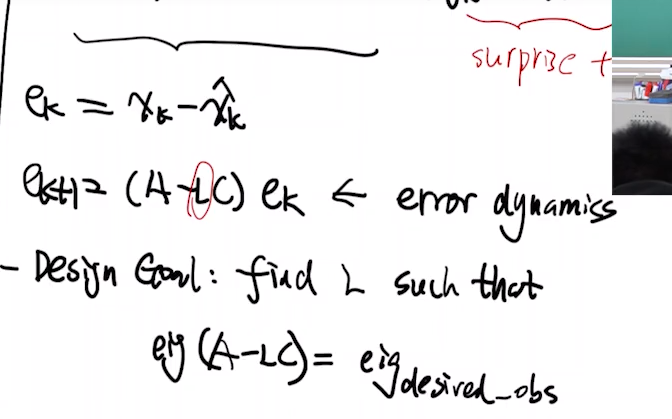 surprise +
e_k = x_k - x̂_k
e_k+1 = (A - LC) e_k ← error dynamiss
- Design Goal: find L such that
eig (A - LC) = eig_desired_obs